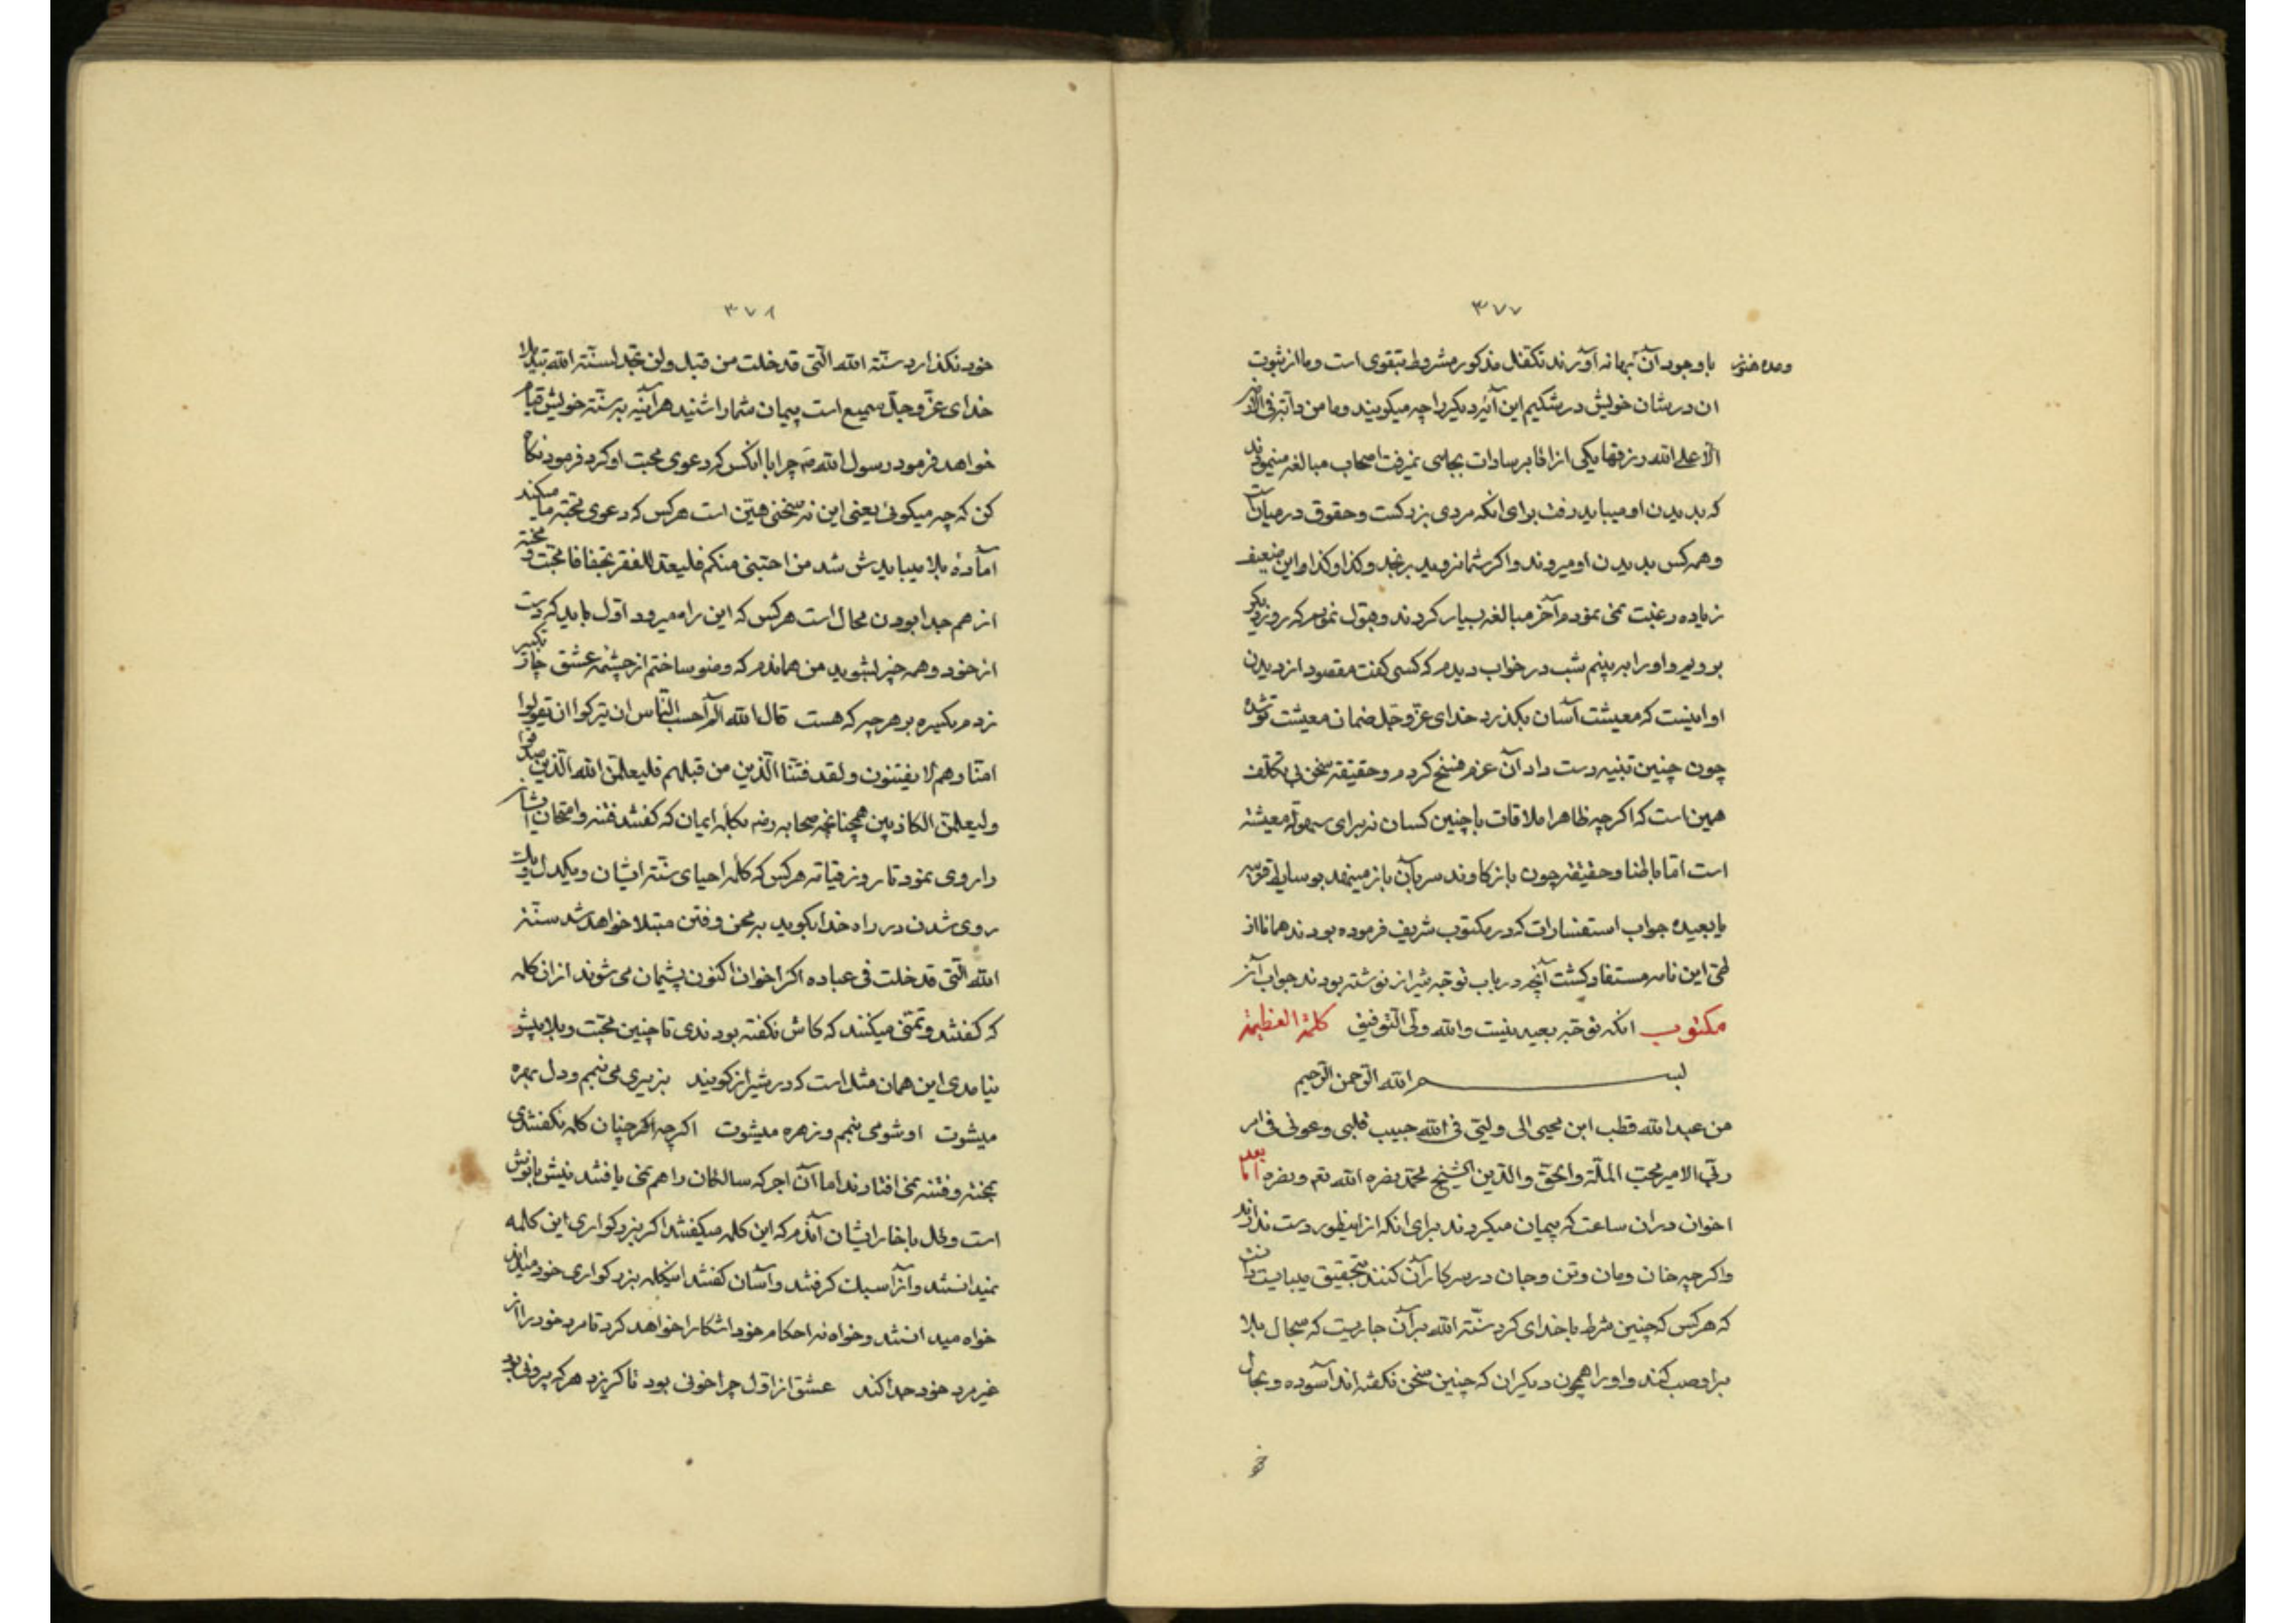 ۳۷۷
با وجود آن بهانه آورند تکفل مذکور مشروط بتقوی است و ما از ثبوت
ان در شان خویش در شکیم این آیه دیکر را چه میکویند و ما من دآبة فی الارض
الا علی الله رزقها یکی از اقابر سادات بجلسی نمیرفت اصحاب مبالغه مینمودند
که بدیدن او میباید رفت برای انکه مردی بزرکست و حقوق در میان
و همه کس بدیدن او میروند و اکر شما نروید برنجد و کذا و کذا و این ضعیف
زیاده رغبت نمی نمودم آخر مبالغه بسیار کردند و قبول نمودم که روز دیکر
برویم و او را ببینیم شب در خواب دیدم که کسی کفت مقصود از دیدن
او اینست که معیشت آسان بکذرد خدای عز و جل ضمان معیشت تو شده
چون چنین تنبیه دست داد آن عزم فسخ کردم و حقیقة سخن بی تکلف
همین است که اکر چه ظاهرا ملاقات با چنین کسان نه برای سهولة معیشة
است اما باطنا و حقیقة چون باز کاوند سر بآن باز مینهد بوسایط قریبه
یا بعیده جواب استفسارات که در مکتوب شریف فرموده بودند همانا از
طی این نامه مستفاد کشت آنچه در باب توجه شیراز نوشته بودند جواب آن
مکتوب انکه توجه بعید نیست والله ولی التوفیق کلمة العظیمة
بسم الله الرحمن الرحیم
من عبد الله قطب ابن محیی الی ولیی فی الله حبیب قلبی و عونی فی امر
ربی الامیر محب الملة والحق والدین الشیخ محمد نصره الله تع و نصره اما بعد
اخوان دران ساعت که پیمان میکردند برای انکه از اینطور دست ندارند
و اکر چه خان و مان و تن و جان در سر کار آن کنند بتحقیق میبایست دانست
که هر کس که چنین شرط با خدای کرد سنة الله بر آن جاریست که سجال بلا
برا وصب کند و او را همچون دیکران که چنین سخن نکفته اند آسوده و بحال
۳۷۸
خود نکذارد سنة الله التی قد خلت من قبل ولن تجد لسنة الله تبدیلا
خدای عز و جل سمیع است پیمان شما را شنید هر آینه به سنة خویش قیام
خواهد فرمود رسول الله صم چرا با انکس که دعوی محبت او کرد فرمود نکاه
کن که چه میکوئ یعنی این نه سخنی هین است هر کس که دعوی محبة ما میکند
آمادهٔ بلا میباید ش شد من احبنی منکم فلیعد للفقر تجفافا محبت و محنة
از هم جدا بودن محال است هر کس که این را میرود اول باید که دست
از خود و همه چیز بشوید من هماندم که وضو ساختم از چشمه عشق چار تکبیر
زدم یکسره بر هر چه که هست قال الله الم آحسب الناس ان یترکوا ان یقولوا
امنا و هم لا یفتنون و لقد فتنا الذین من قبلهم فلیعلمن الله الذین صدقوا
و لیعلمن الکاذبین همچنانچه صحابه رضه بکلمه ایمان که کفتند فتنه و امتحان
را روی نمود تا روز قیامة هر کس که کلمه احیای سنة ایشان و یکدل و یک
روی شدن در راه خدا بکوید به محن و فتن مبتلا خواهد شد سنة
الله التی قد خلت فی عباده اکر اخوان اکنون پشیمان می شوند از ان کلمه
که کفتند و تمنی میکنند که کاش نکفته بودندی تا چنین محنت و بلا پیش
نیامدی این همان مثل است که در شیراز کویند بزیری می پنجم و دل بهره
میشوت او شومی پنجم و زهره میشوت اکر چه اکر چنان کلمه نکفتندی
بمحنة و فتنه نمی افتادند اما آن اجر که سالکان راهم نمی یافتند نیش با نوش
است و کل با خار ایشان آندم که این کلمه میکفتند اکر بزرکواری این کلمه
نمیدانستند و آنرا سبک کرفتند و آسان کفتند اینکلمه بزرکواری خود میداند
خواه میدانستند و خواه نه احکام خود اشکارا خواهد کرد تا مرد خود را از
غیر مرد خود جدا کند عشق از اول چرا خونی بود تا کریزد هر که بیرونی بود